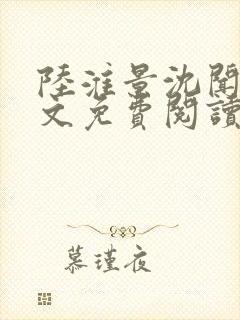 陸淮景沈聞
文免費閱讀
慕瑾夜